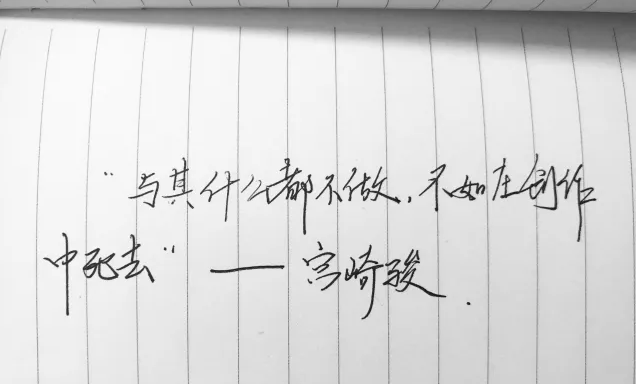 “与其什么都不做,不如在创作
中死去”——宫崎骏.